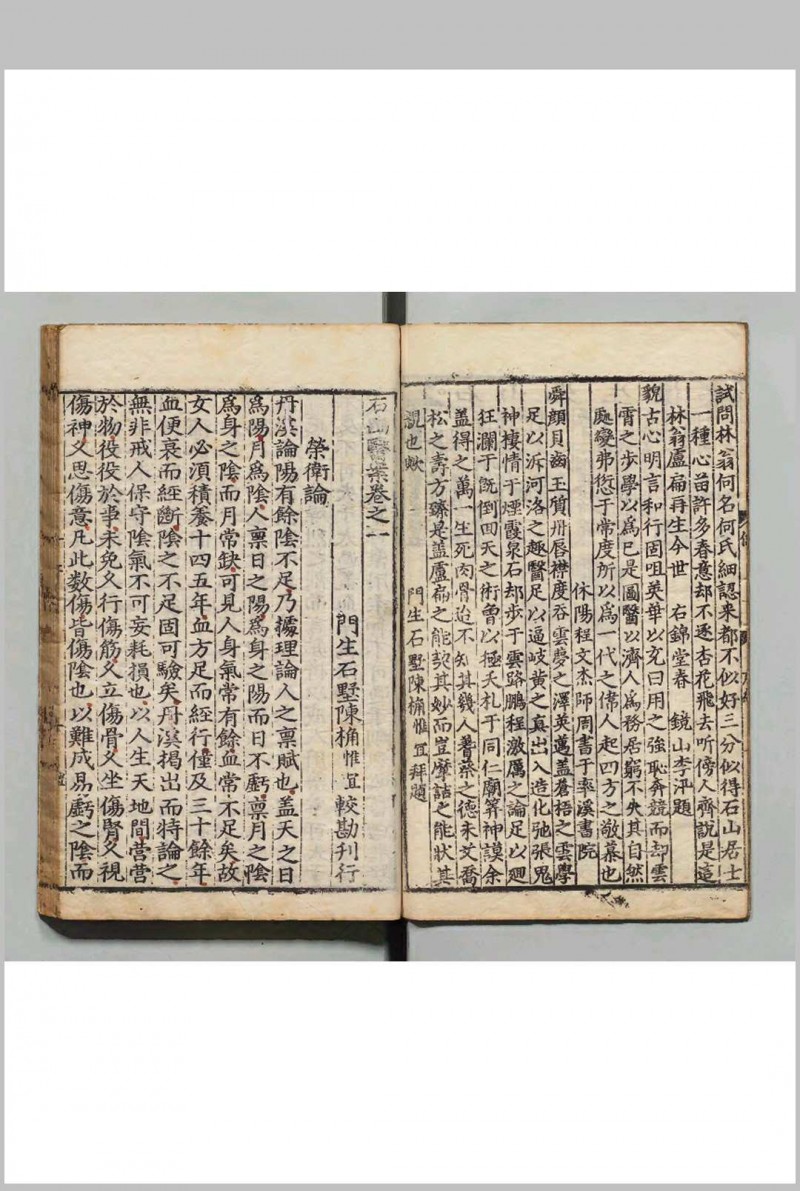 試問林翁何名何氏細認来都不似好三分似得石山居士
一種心苗許多春意却不逐杏花飛去听傍人齊說是這
林翁盧扁再生今世　右錦堂春　鏡山李汛題
貌古心明言和行固咀英華以充日用之強恥奔競而却雲
霄之步學以為已是圖醫以濟人爲務居窮不失其自然
處變弗愆于常度所以爲一代之偉人起四方之敬慕也
休陽程文杰師周書于率溪書院
舜顔貝齒玉質丹唇襟度吞雲夢之澤英邁盖蒼梧之雲學
足以泝河洛之趣醫足以逼岐黄之真出入造化弛張鬼
神棲情于煙霞泉石却步于雲路鵬程激厲之論足以廻
狂瀾于既倒回天之術曽以極夭札于同仁廟筭神謨余
盖得之萬一生死肉骨迨不知其幾人蓍蔡之德朱艾喬
松之壽方臻是盖盧扁之能契其妙而豈摩詰之能狀其
覞也歟　門生石墅陳桷惟宜拜題
石山醫案卷之一
門生石墅陳桷惟宜較勘刊行
榮衛論
丹溪論陽有餘陰不足乃據理論人之禀賦也盖天之日
爲陽月爲陰人禀日之陽爲身之陽而日不虧禀月之陰
爲身之陰而月常缺可見人身氣常有餘血常不足矣故
女人必須積養十四五年血方足而經行僅及三十餘年
血便衰而經斷陰之不足固可驗矣丹溪揭出而特論之
無非戒人保守陰氣不可妄耗損也以人生天地間營營
於物役役於事未免久行傷筋久立傷骨久坐傷腎久視
傷神久思傷意凡此数傷皆傷陰也以難成易虧之陰而